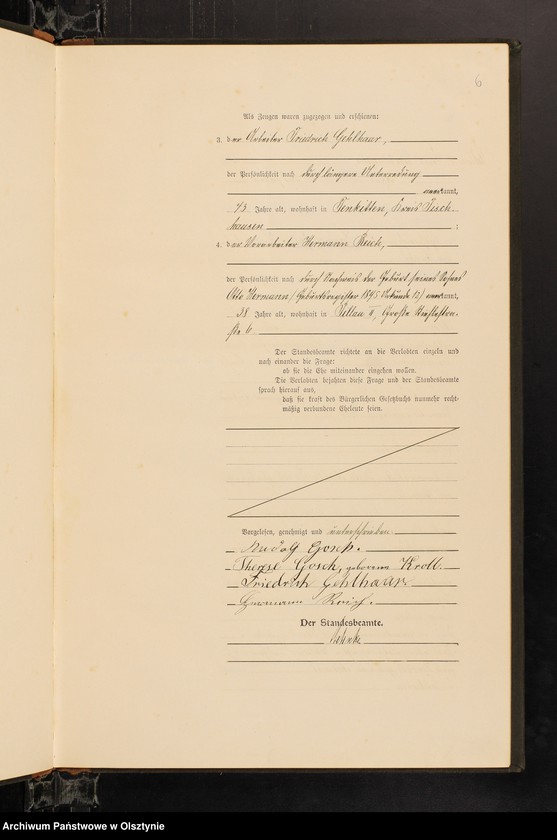 6
Als Zeugen waren zugezogen und erschienen:
3. der Arbeiter Friedrich Gehlhaar,
der Persönlichkeit nach durch längere Unterredung
anerkannt,
43 Jahre alt, wohnhaft in Tenkitten, Kreis Fisch-
hausen ;
4. der Vorarbeiter Hermann Reich,
der Persönlichkeit nach durch Nachweis der Geburt seines Sohnes
Otto Hermann (Geburtsregister 1895 Urkunde 12) anerkannt,
38 Jahre alt, wohnhaft in Pillau II, Große
6.
Der Standesbeamte richtete an die Verlobten einzeln und
nach einander die Frage:
ob sie die Ehe miteinander eingehen wollen.
Die Verlobten bejahten diese Frage und der Standesbeamte
sprach hierauf aus,
daß sie kraft des Bürgerlichen Gesetzbuchs nunmehr recht-
mäßig verbundene Eheleute seien.
Vorgelesen, genehmigt und unterschrieben
Rudolf Gosch.
Therese Gosch, geborene Kroll.
Friedrich Gehlhaar
Hermann Reich.
Der Standesbeamte.
Archiwum Państwowe w Olsztynie